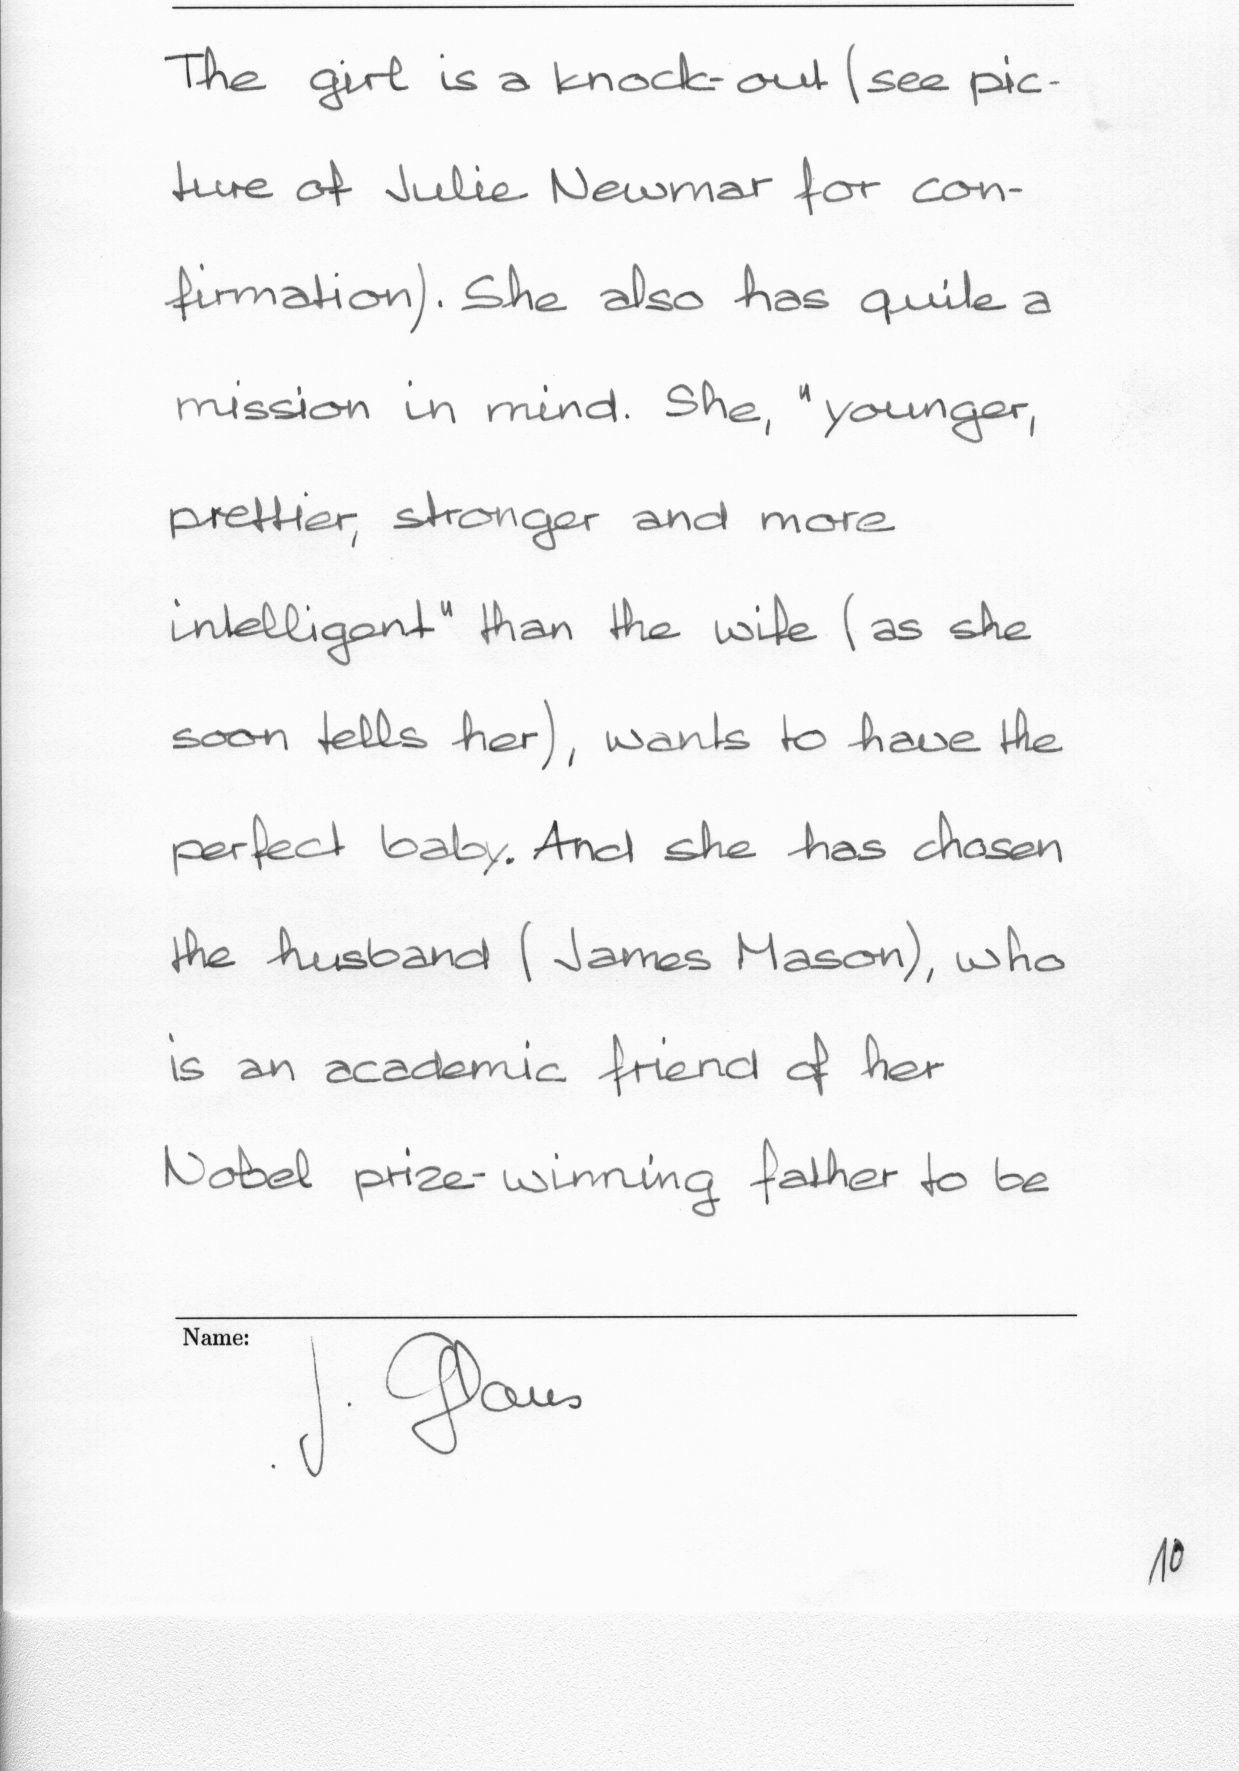 The girl is a knock-out (see pic-
ture of Julie Newmar for con-
firmation). She also has quite a
mission in mind. She, "younger,
prettier, stronger and more
intelligent" than the wife (as she
soon tells her), wants to have the
perfect baby. And she has chosen
the husband (James Mason), who
is an academic friend of her
Nobel prize-winning father to be
Name:
J. Glaus
10